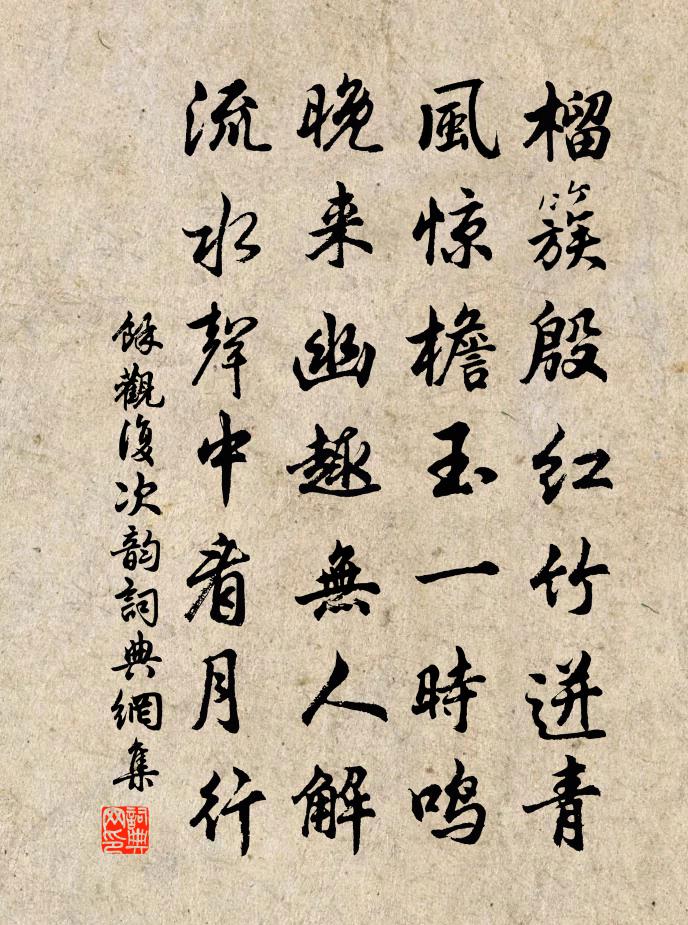 榴簇殷红竹迸青
風惊檐玉一時鸣
晚来幽趣無人解
流水聲中看月行
餘觀復次韵詞典網集
詞典網印